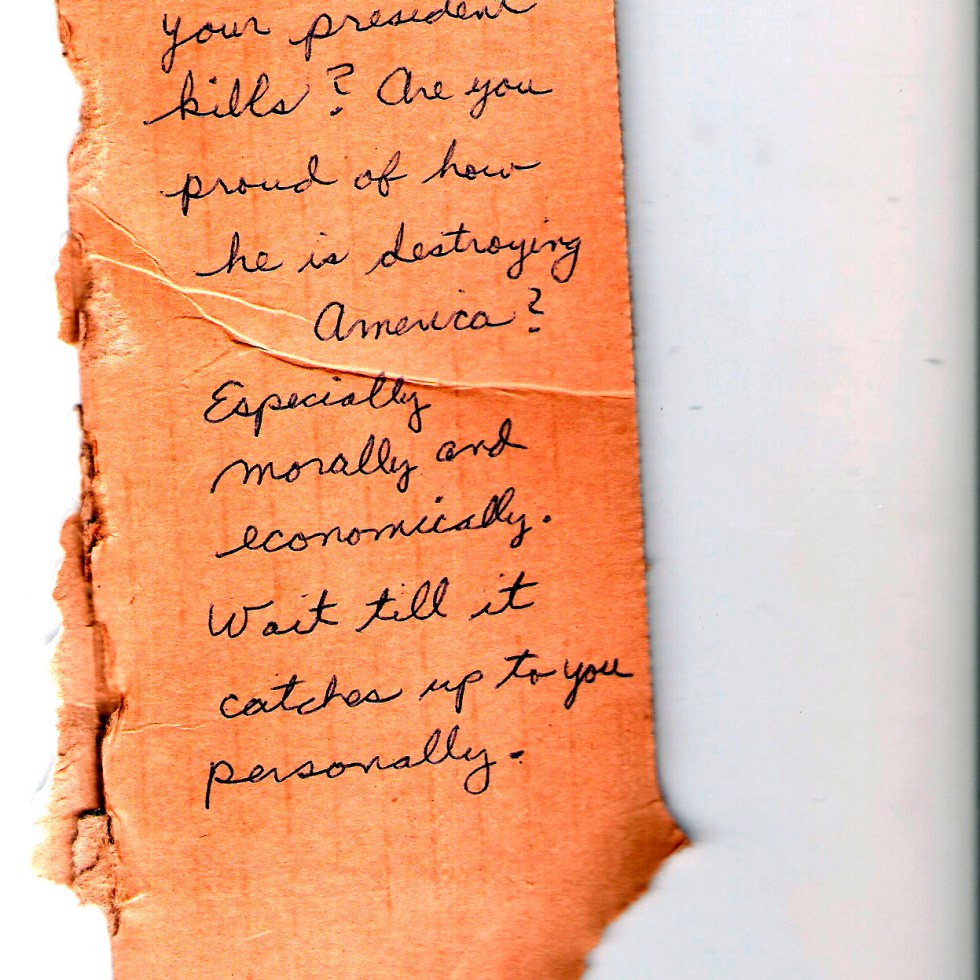 your president
kills? Are you
proud of how
he is destroying
America?
Especially
morally and
economically.
Wait till it
catches up to you
personally.